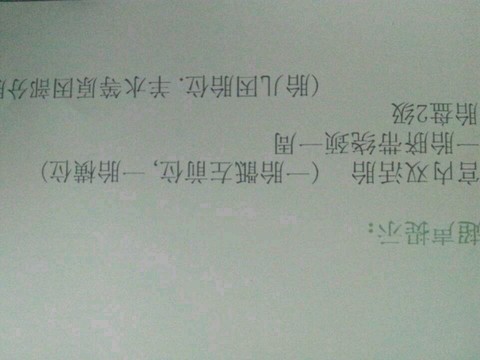 超声提示：
宫内双活胎 （一胎骶左前位，一胎横位）
一胎脐带绕颈一周
胎盘2级
（胎儿因胎位．羊水等原因部分